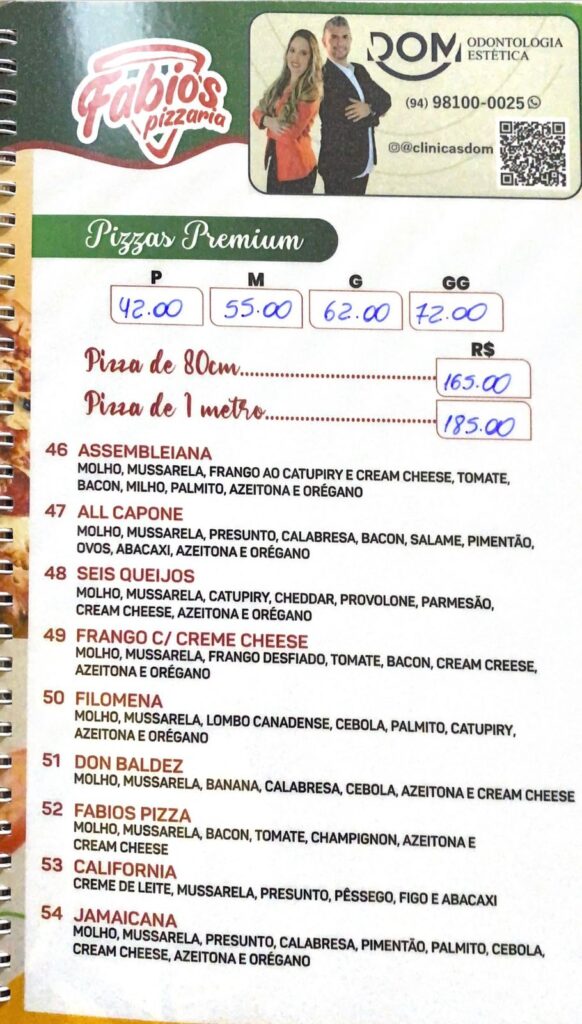 Fabio's
pizzaria
DOM ODONTOLOGIA
ESTÉTICA
(94) 98100-0025
@clinicasdom
Pizzas Premium
P M G GG
42.00 55.00 62.00 72.00
R$
Pizza de 80cm........................................ 165.00
Pizza de 1 metro.................................... 185.00
46 ASSEMBLEIANA
MOLHO, MUSSARELA, FRANGO AO CATUPIRY E CREAM CHEESE, TOMATE,
BACON, MILHO, PALMITO, AZEITONA E ORÉGANO
47 ALL CAPONE
MOLHO, MUSSARELA, PRESUNTO, CALABRESA, BACON, SALAME, PIMENTÃO,
OVOS, ABACAXI, AZEITONA E ORÉGANO
48 SEIS QUEIJOS
MOLHO, MUSSARELA, CATUPIRY, CHEDDAR, PROVOLONE, PARMESÃO,
CREAM CHEESE, AZEITONA E ORÉGANO
49 FRANGO C/ CREME CHEESE
MOLHO, MUSSARELA, FRANGO DESFIADO, TOMATE, BACON, CREAM CREESE,
AZEITONA E ORÉGANO
50 FILOMENA
MOLHO, MUSSARELA, LOMBO CANADENSE, CEBOLA, PALMITO, CATUPIRY,
AZEITONA E ORÉGANO
51 DON BALDEZ
MOLHO, MUSSARELA, BANANA, CALABRESA, CEBOLA, AZEITONA E CREAM CHEESE
52 FABIOS PIZZA
MOLHO, MUSSARELA, BACON, TOMATE, CHAMPIGNON, AZEITONA E
CREAM CHEESE
53 CALIFORNIA
CREME DE LEITE, MUSSARELA, PRESUNTO, PÊSSEGO, FIGO E ABACAXI
54 JAMAICANA
MOLHO, MUSSARELA, PRESUNTO, CALABRESA, PIMENTÃO, PALMITO, CEBOLA,
CREAM CHEESE, AZEITONA E ORÉGANO